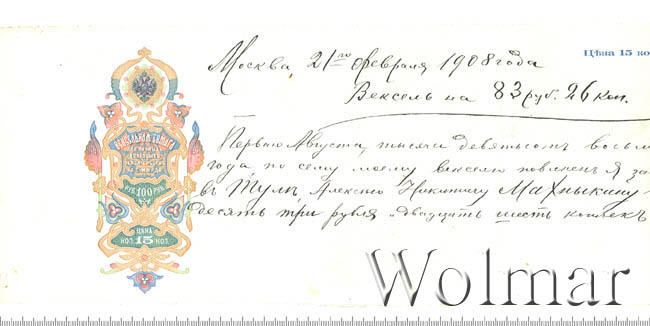 Цѣна 15 ко
Москва, 21го Февраля 1908 года
Вексель на 83 руб. 26 коп.
Перваго Августа, тысяча девятьсотъ восьм
года по сему моему векселю повиненъ я за
въ Тулѣ Алексѣю Никитичу
десять три рубля двадцать шесть копѣекъ
РУБ. 100 РУБ.
ЦѢНА
КОП. 15 КОП.
Wolmar